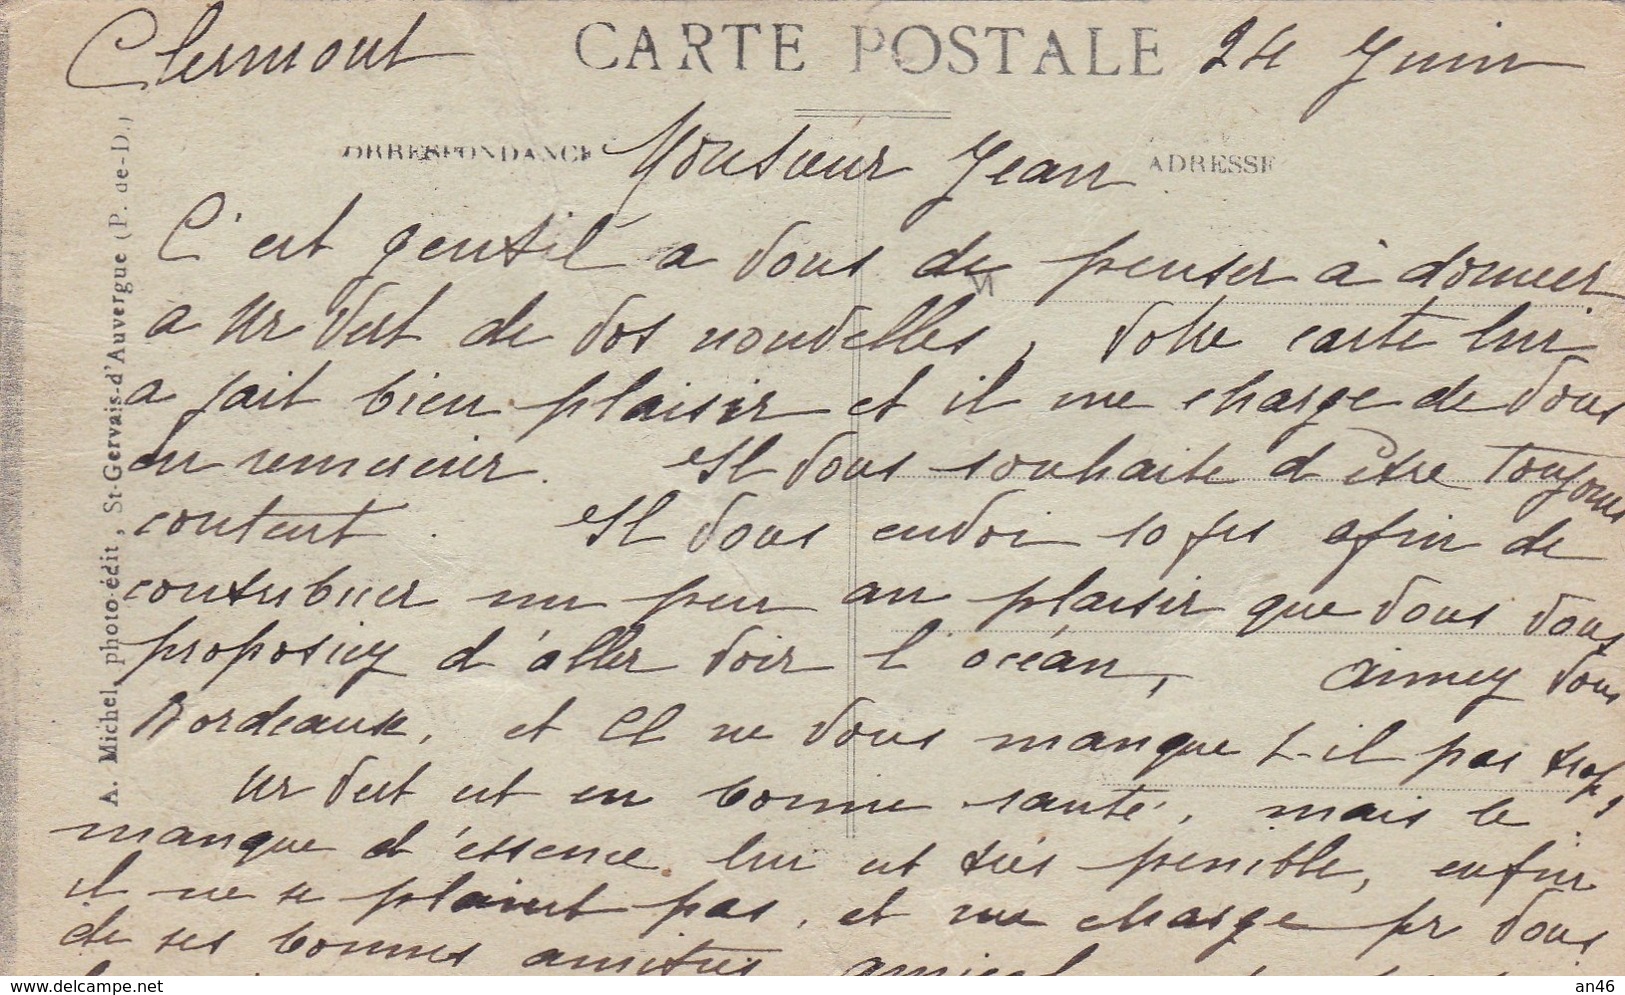 Clermont CARTE POSTALE 24 Juin
ORRESPONDANCE Monsieur Jean ADRESSE
C'est gentil a vous de penser à donner
a Mr Vert de vos nouvelles, votre carte lui
a fait bien plaisir et il me charge de vous
en remercier. Il vous souhaite d'être toujours
content. Il vous envoi 10 frs afin de
contribuer un peu au plaisir que vous vous
proposiez d'aller voir l'océan, aimez vous
Bordeaux, et il ne vous manque t-il pas trop,
Mr Vert est en bonne santé, mais le
manque d'essence lui est très penible, enfin
il ne se plaint pas, et me charge pr vous
de ses bonnes amitiés
A. Michel, photo-édit, St-Gervais-d'Auvergne (P.-de-D.)
www.delcampe.net
an46